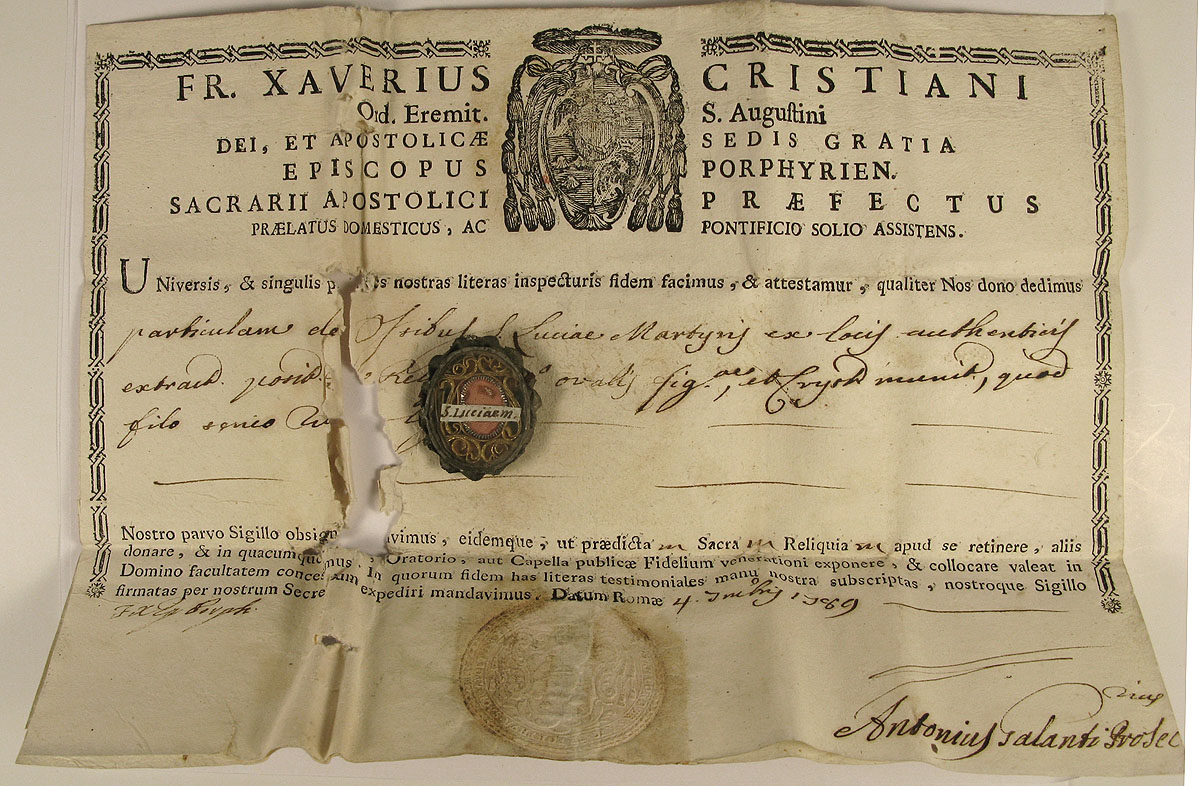 FR. XAVERIUS CRISTIANI
Ord. Eremit. S. Auguſtini
DEI, ET APOSTOLICÆ SEDIS GRATIA
EPISCOPUS PORPHYRIEN.
SACRARII APOSTOLICI PRÆFECTUS
PRÆLATUS DOMESTICUS, AC PONTIFICIO SOLIO ASSISTENS.
UNiversis, & singulis nostras literas inspecturis fidem facimus, & attestamur, qualiter Nos dono dedimus
particulam de Ossibus S. Luciae Martyris ex locis authenticis
extract. posit. ovalis fig.ae, et Cryst. munit., quod
filo serico
S. Luciae m.
Nostro parvo Sigillo obsig avimus, eidemque, ut prædicta m Sacra m Reliquia m apud se retinere, aliis
donare, & in quacumque Oratorio, aut Capella publicæ Fidelium venerationi exponere, & collocare valeat in
Domino facultatem conce imus. In quorum fidem has literas testimoniales manu nostra subscriptas, nostroque Sigillo
firmatas per nostrum Secre expediri mandavimus. Datum Romæ 4.
Antonius Prosec